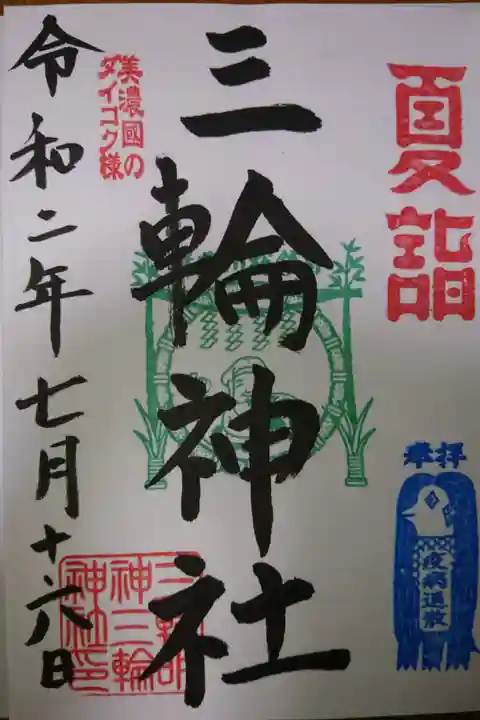 夏詣
奉拝
疫病退散
三輪神社
美濃國の
ダイコク様
令和二年七月十六日